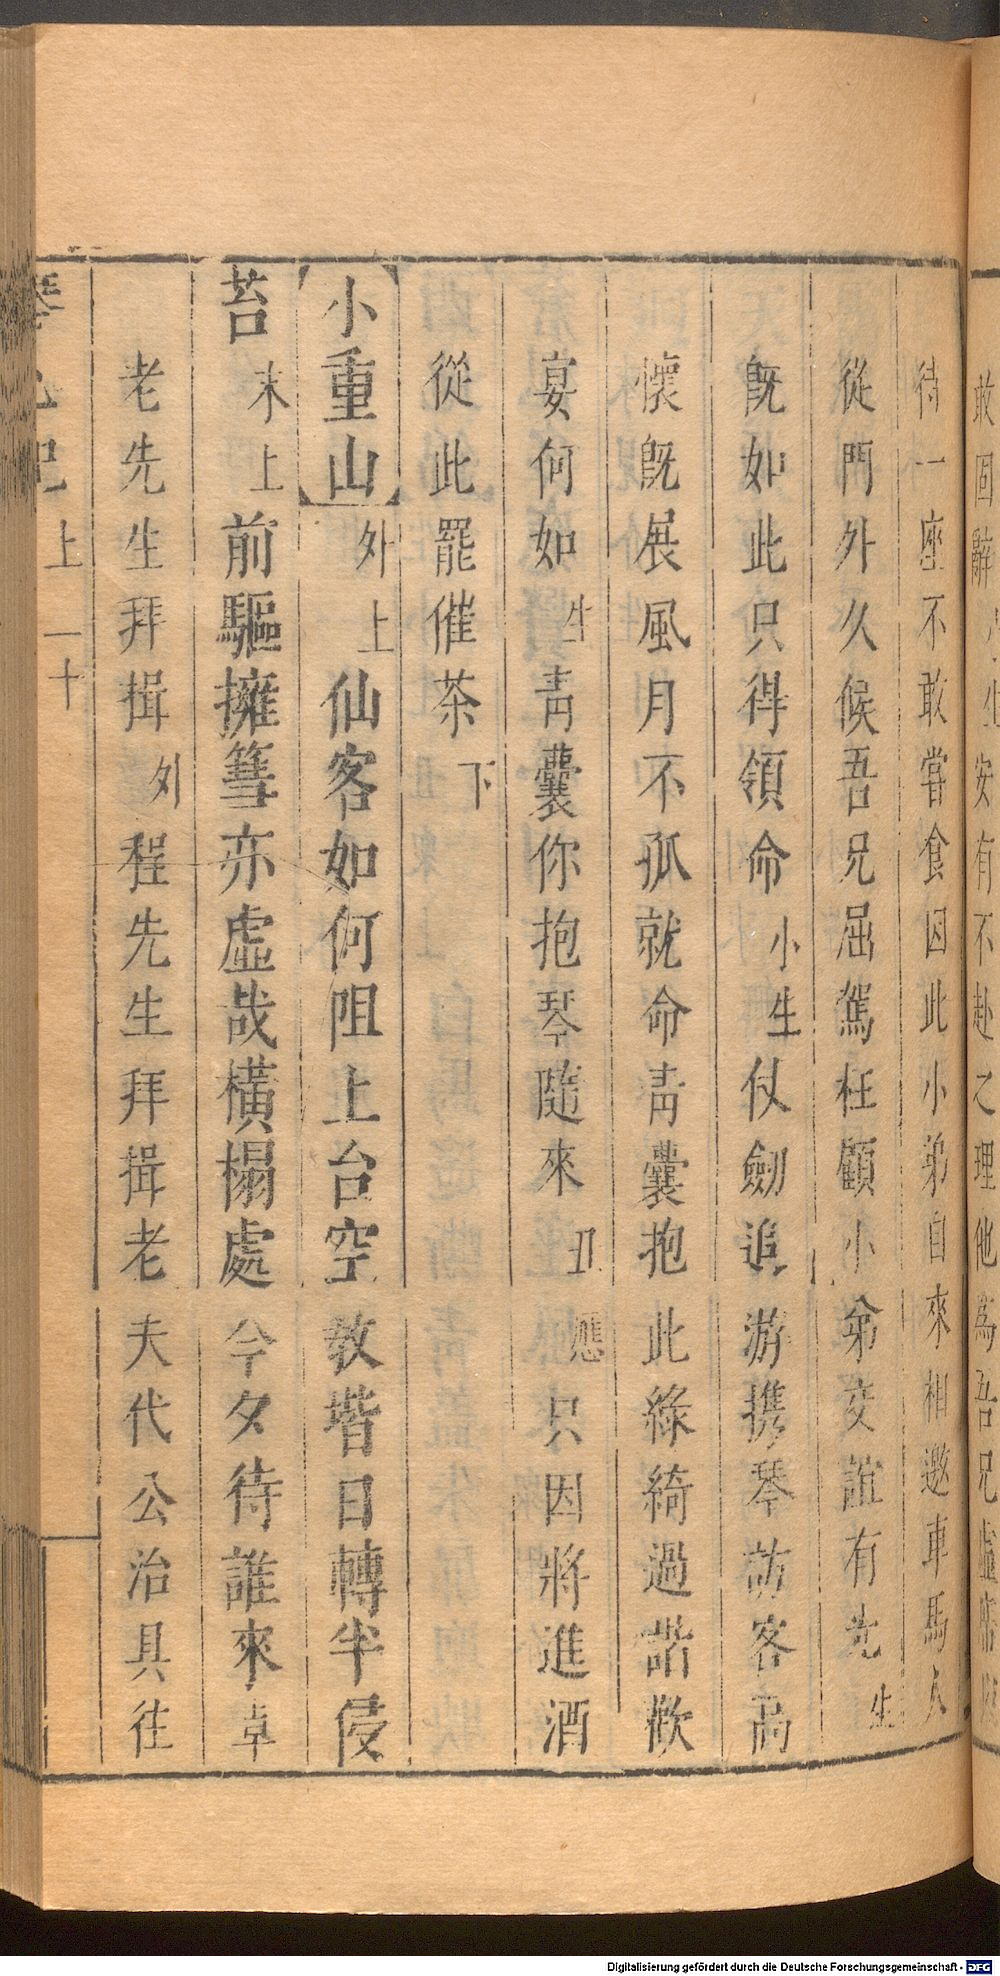 敢固辭 生安有不赴之理他為吾兄虛席
待一座不敢嘗食因此小弟自來相邀車馬人
從門外久候吾兄屈駕枉顧小弟交誼有光生
既如此只得領命小生仗劔追游携琴訪客高
懷既展風月不孤就命青囊抱此綠綺過諧歡
宴何如生青囊你抱琴隨來丑應只因將進酒
從此罷催茶下
小重山外上仙客如何阻上台空教堦日轉半侵
苔末上前驅擁篲亦虛哉橫榻處今夕待誰來卓
老先生拜揖外程先生拜揖老夫代公治具往
琴心記 上 二十
Digitalisierung gefördert durch die Deutsche Forschungsgemeinschaft - DFG